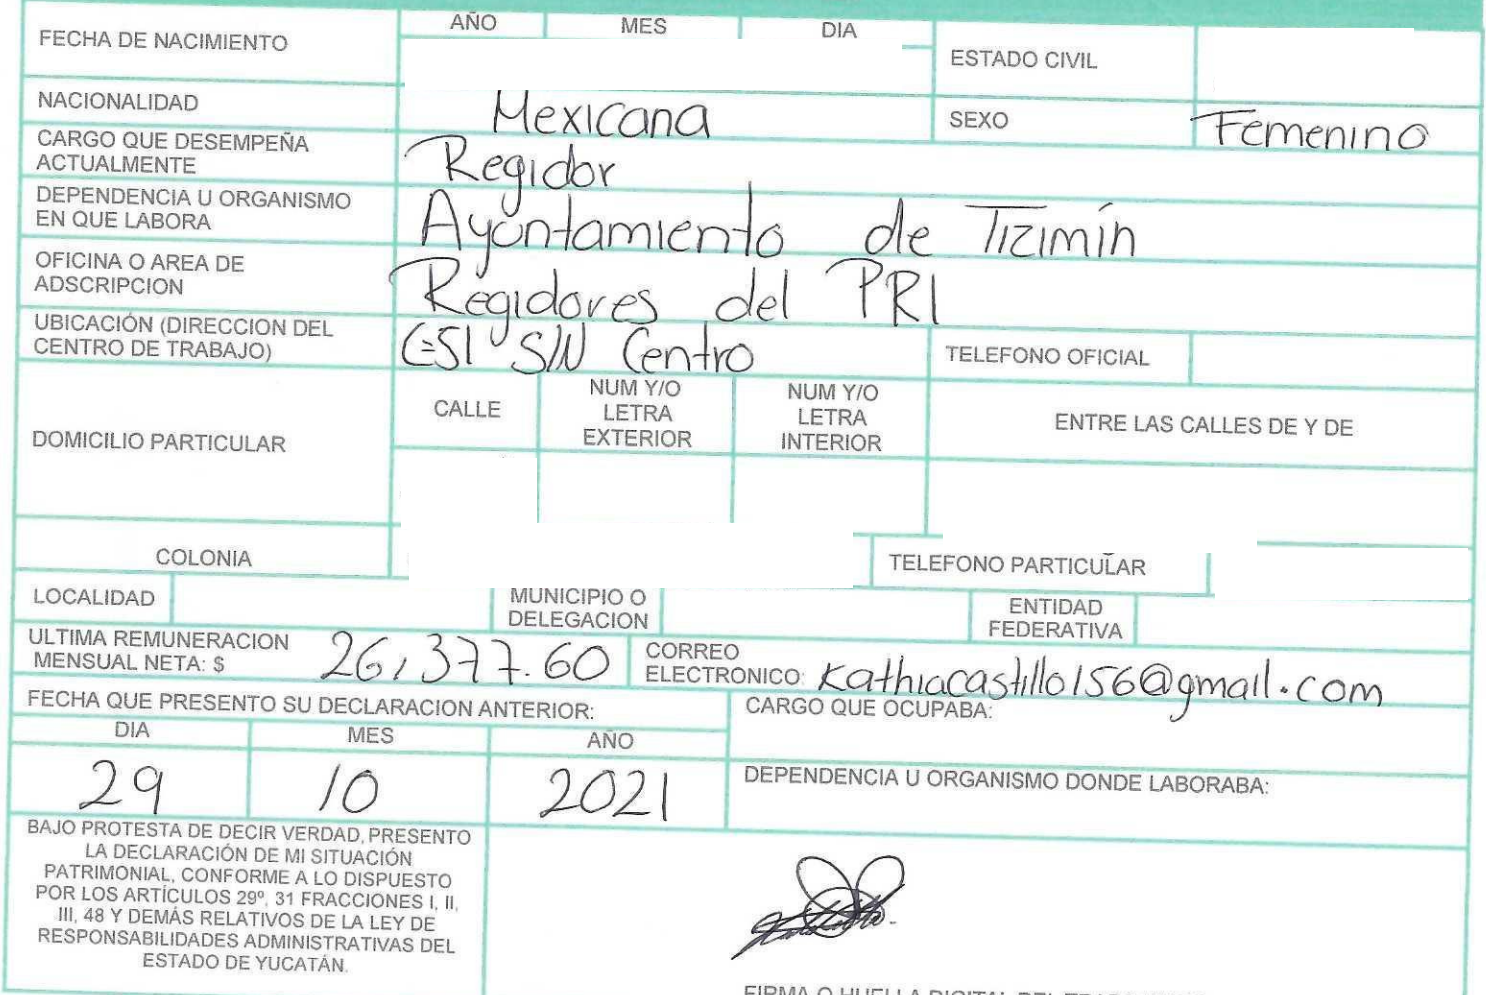 AÑO MES DIA
FECHA DE NACIMIENTO
ESTADO CIVIL
NACIONALIDAD Mexicana SEXO Femenino
CARGO QUE DESEMPEÑA
ACTUALMENTE Regidor
DEPENDENCIA U ORGANISMO
EN QUE LABORA Ayuntamiento de Tizimín
OFICINA O AREA DE
ADSCRIPCION Regidores del PRI
UBICACIÓN (DIRECCION DEL
CENTRO DE TRABAJO) C=51 S/N Centro TELEFONO OFICIAL
DOMICILIO PARTICULAR
CALLE
NUM Y/O
LETRA
EXTERIOR
NUM Y/O
LETRA
INTERIOR
ENTRE LAS CALLES DE Y DE
COLONIA TELEFONO PARTICULAR
LOCALIDAD
MUNICIPIO O
DELEGACION
ENTIDAD
FEDERATIVA
ULTIMA REMUNERACION
MENSUAL NETA: $ 26,377.60
CORREO
ELECTRONICO: Kathiacastillo156@gmail.com
FECHA QUE PRESENTO SU DECLARACION ANTERIOR:
CARGO QUE OCUPABA:
DIA MES AÑO
29 10 2021
DEPENDENCIA U ORGANISMO DONDE LABORABA:
BAJO PROTESTA DE DECIR VERDAD, PRESENTO
LA DECLARACIÓN DE MI SITUACIÓN
PATRIMONIAL, CONFORME A LO DISPUESTO
POR LOS ARTÍCULOS 29º, 31 FRACCIONES I, II,
III, 48 Y DEMÁS RELATIVOS DE LA LEY DE
RESPONSABILIDADES ADMINISTRATIVAS DEL
ESTADO DE YUCATÁN.
FIRMA O HUELLA DIGITAL DEL